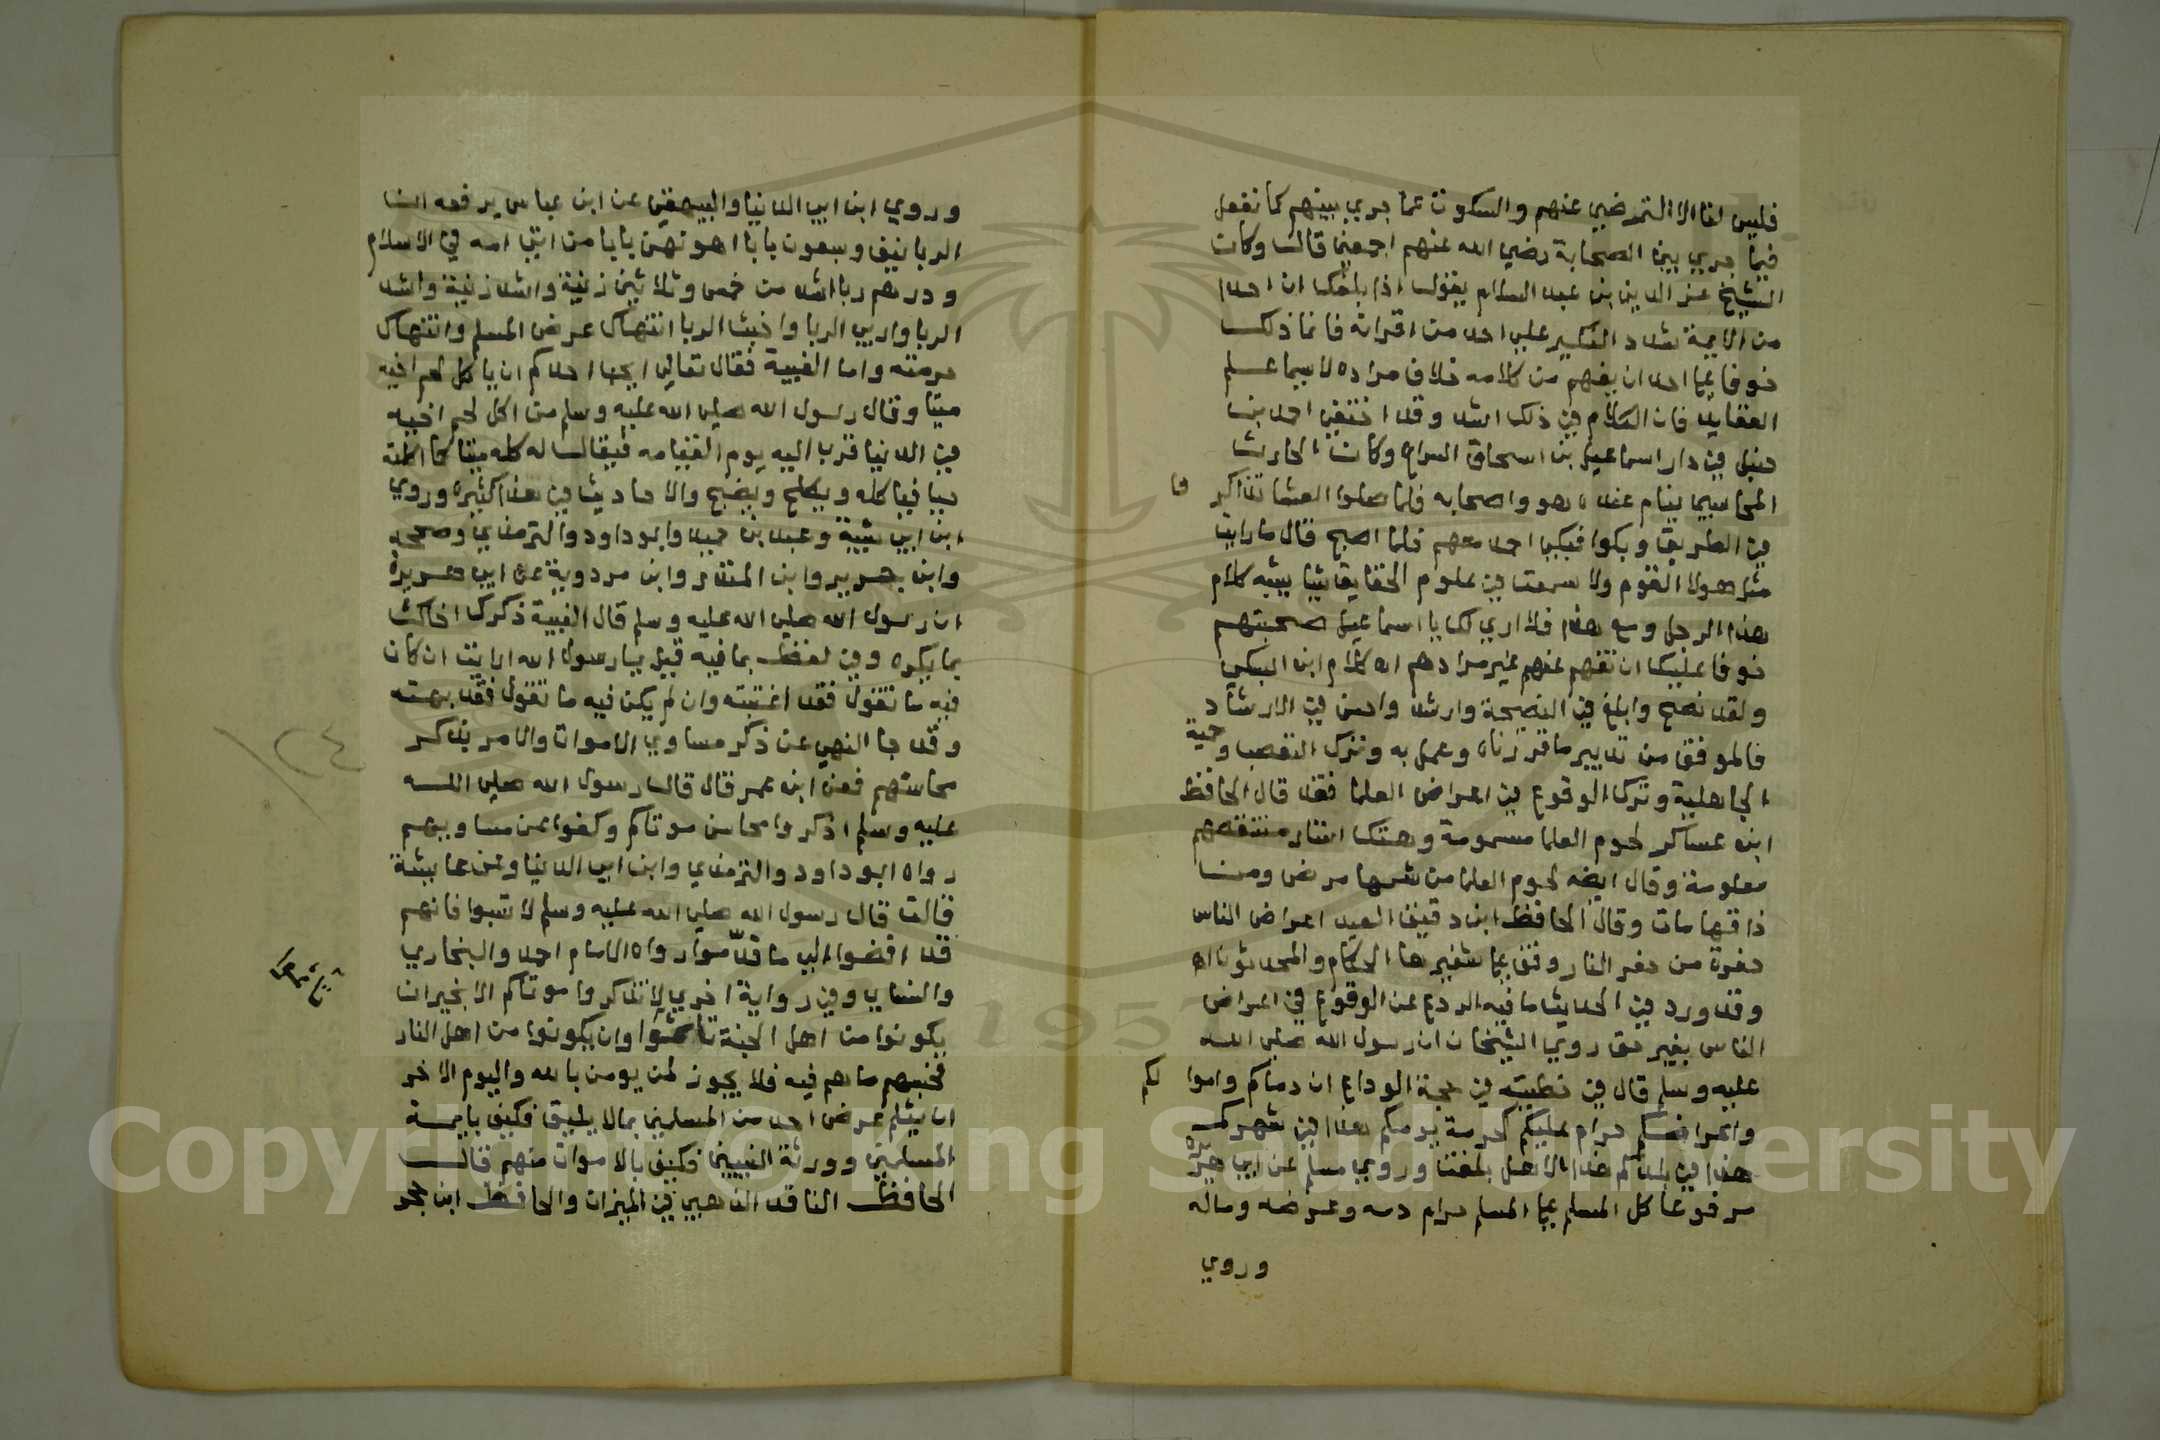 فليس لنا الا الترضي عنهم والسكوت عما جري بينهم كما نفعل
فيما جري بين الصحابة رضي الله عنهم اجمعين قال وكان
الشيخ عز الدين بن عبد السلام يقول اذا بلغك ان احدا
من الايمة شدد النكير علي احد من اقرانه فانما ذلك
خوفا علي احد ان يفهم من كلامه خلاف مراده لا سيما علم
العقايد فان الكلام في ذلك اشد وقد اختفي احمد بن
حنبل في دار اسماعيل بن اسحاق السراج وكان الحارث
المحاسبي ينام عنده هو واصحابه فلما صلوا العشا تذاكر
وا
في الطريق وبكوا فبكي احمد معهم فلما اصبح قال ما رايت
مثل هولا القوم ولا سمعت في علوم الحقايق شيا يشبه كلام
هذا الرجل ومع هذا فلا اري لك يا اسماعيل صحبتهم
خوفا عليك ان تفهم عنهم غير مرادهم اه كلام ابن السبكي
ولقد نصح وابلغ في النصيحة وارشد واحسن في الارشاد
فالموفق من تدبر ما قررناه وعمل به وترك التعصب وحمية
الجاهلية وترك الوقوع في اعراض العلما فقد قال الحافظ
ابن عساكر لحوم العلما مسمومة وهتك استار منتقصهم
معلومة وقال ايضه لحوم العلما من شمها مرض ومن
ذاقها مات وقال الحافظ ابن دقيق العيد اعراض الناس
حفرة من حفر النار وقف علي شفيرها الحكام والمحدثون اه
وقد ورد في الحديث ما فيه الردع عن الوقوع في اعراض
الناس بغير حق روي الشيخان ان رسول الله صلي الله
عليه وسلم قال في خطبته في حجة الوداع ان دماكم واموا
لكم
واعراضكم حرام عليكم كحرمة يومكم هذا في شهركم
هذا في بلدكم هذا الا هل بلغت وروي مسلم عن ابي هريرة
مرفوعا كل المسلم علي المسلم حرام دمه وعرضه وماله
وروي
وروي ابن ابي الدنيا والبيهقي عن ابن عباس يرفعه
الربا نيف وسبعون بابا اهونهن بابا من اتي امه في الاسلام
ودرهم ربا اشد من خمس وثلاثين زنية واشد
الربا واربي الربا واخبث الربا انتهاك عرض المسلم وانتهاك
حرمته واما الغيبة فقال تعالي ايحب احدكم ان ياكل لحم اخيه
ميتا وقال رسول الله صلي الله عليه وسلم من اكل لحم اخيه
في الدنيا قرب اليه يوم القيامه فيقال له كله ميتا كما اكلته
حيا فياكله ويكلح ويضج والاحاديث في هذا كثيرة وروي
ابن ابي شيبة وعبد بن حميد وابو داود والترمذي وصححه
وابن جرير وابن المنذر وابن مردوية عن ابي هريرة
ان رسول الله صلي الله عليه وسلم قال الغيبة ذكرك اخاك
بما يكره وفي لفظ بما فيه قيل يا رسول الله ارايت ان كان
فيه ما نقول فقد اغتبته وان لم يكن فيه ما تقول فقد بهته
وقد جا النهي عن ذكر مساوي الاموات والامر بذكر
محاسنهم فعن ابن عمر قال قال رسول الله صلي الله
عليه وسلم اذكروا محاسن موتاكم وكفوا عن مساويهم
رواه ابو داود والترمذي وابن ابي الدنيا وعن عايشة
قالت قال رسول الله صلي الله عليه وسلم لا تسبوا فانهم
قد افضوا الي ما قدّموا رواه الامام احمد والبخاري
والنساي وفي رواية اخري لا تذكروا موتاكم الا بخير ان
يكونوا من اهل الجنة تاثموا وان يكونوا من اهل النار
فحسبهم ما هم فيه فلا يجوز لمن يومن بالله واليوم الاخر
ان يثلم عرض احد من المسلمين بما لا يليق فكيف بايمة
المسلمين وورثة النبيين فكيف بالاموات منهم قال
الحافظ الناقد الذهبي في الميزان والحافظ ابن حجر
٢٤